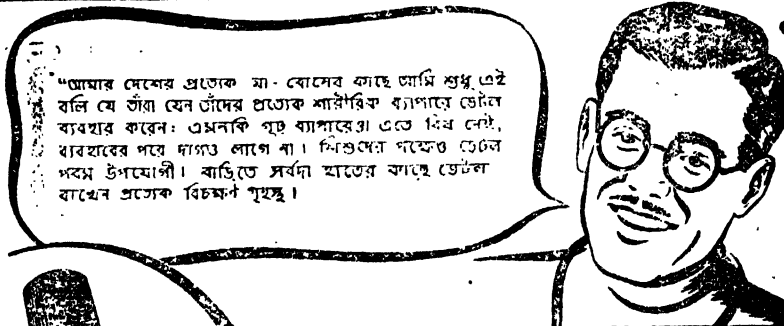 “আমার দেশের প্রত্যেক মা - বোনের কাছে আমি শুধু এই
বলি যে তাঁরা যেন তাঁদের প্রত্যেক শারীরিক ব্যাপারে ডেটল
ব্যবহার করেন: এমনকি গূঢ় ব্যাপারেও। এতে বিষ নেই,
ব্যবহারের পরে দাগও লাগে না। শিশুদের পক্ষেও ডেটল
পরম উপযোগী। বাড়িতে সর্বদা হাতের কাছে ডেটল
রাখেন প্রত্যেক বিচক্ষণ গৃহস্থ।